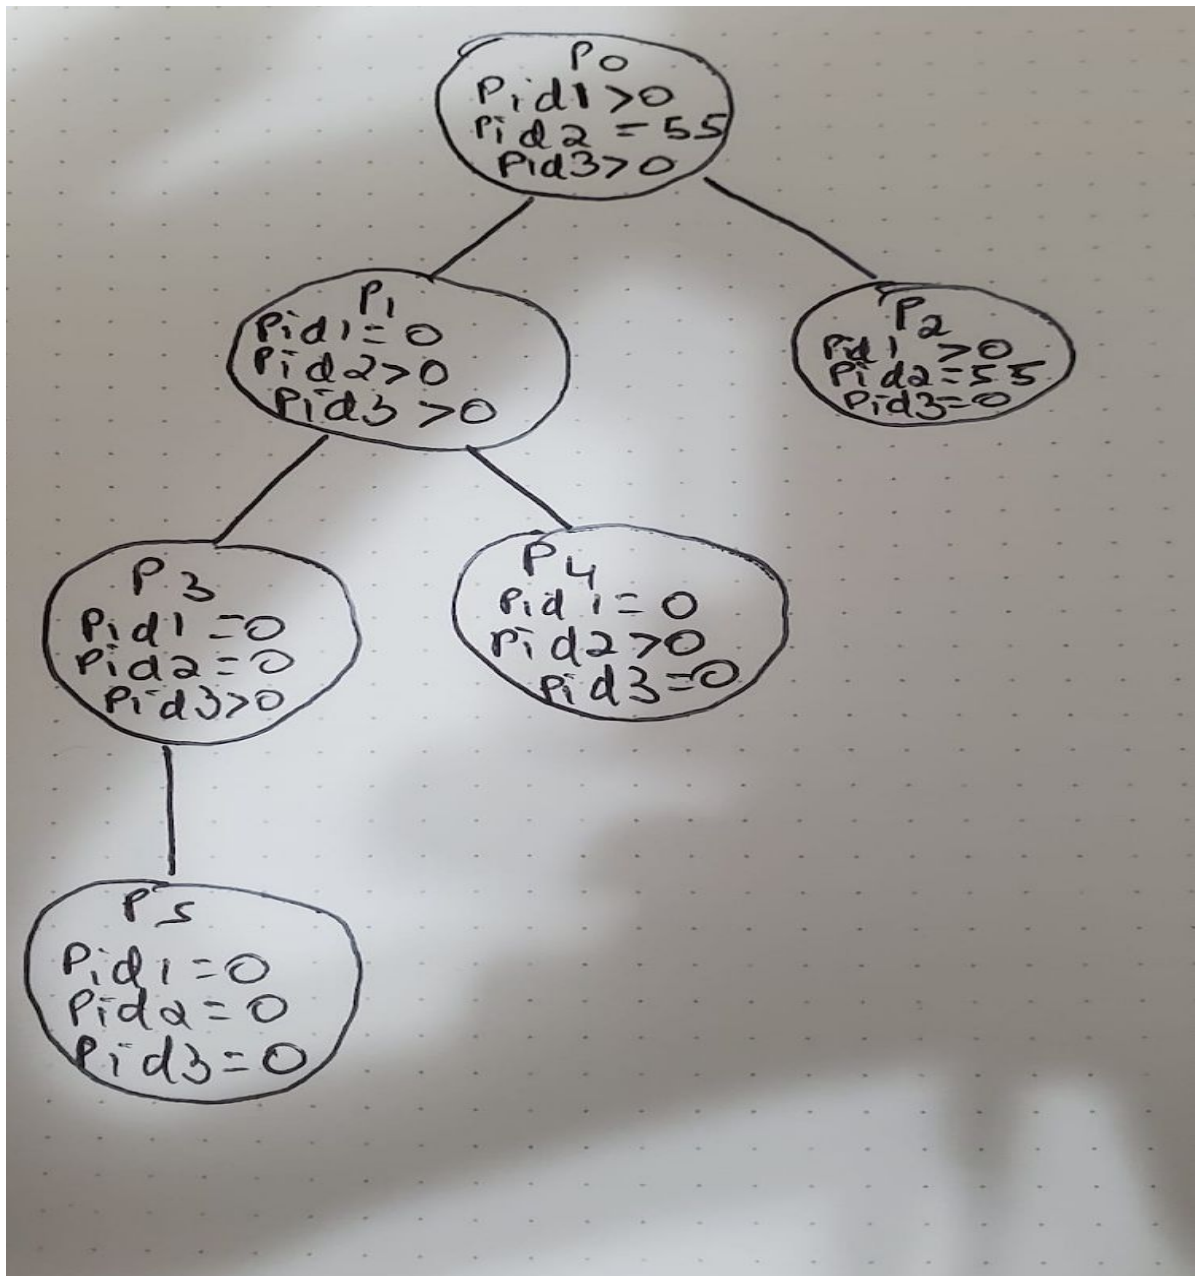 P0
Pid1 >0
Pid2 = 55
Pid3>0
P1
Pid1= 0
Pid2>0
Pid3 >0
P2
Pid1 >0
Pid2=55
Pid3=0
P3
Pid1 =0
Pid2=0
Pid3>0
P4
Pid1=0
Pid2>0
Pid3=0
P5
Pid1=0
Pid2=0
Pid3=0